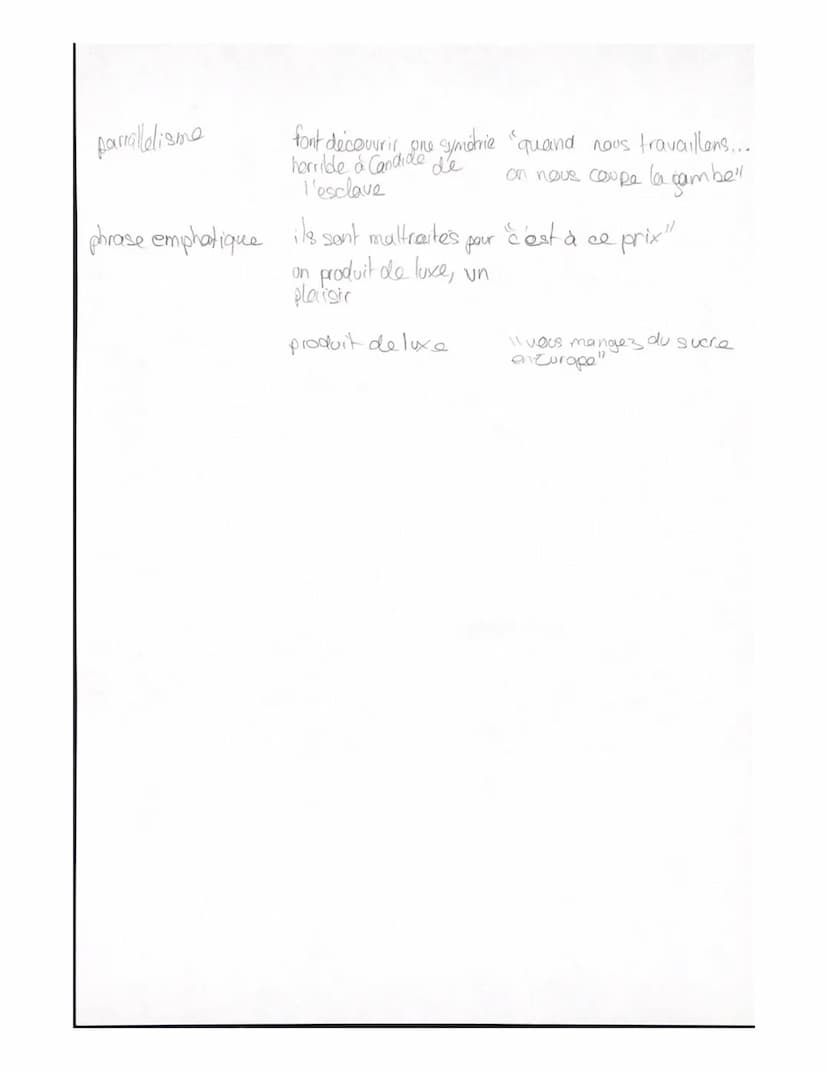 parrallelisme font découvrir une symétrie "quand nous travaillons...
horrible à Candide de on nous coupe la jambe"
l'esclave
phrase emphatique ils sont maltraités pour "c'est à ce prix"
un produit de luxe, un
plaisir
produit de luxe "vous mangez du sucre
en Europe"